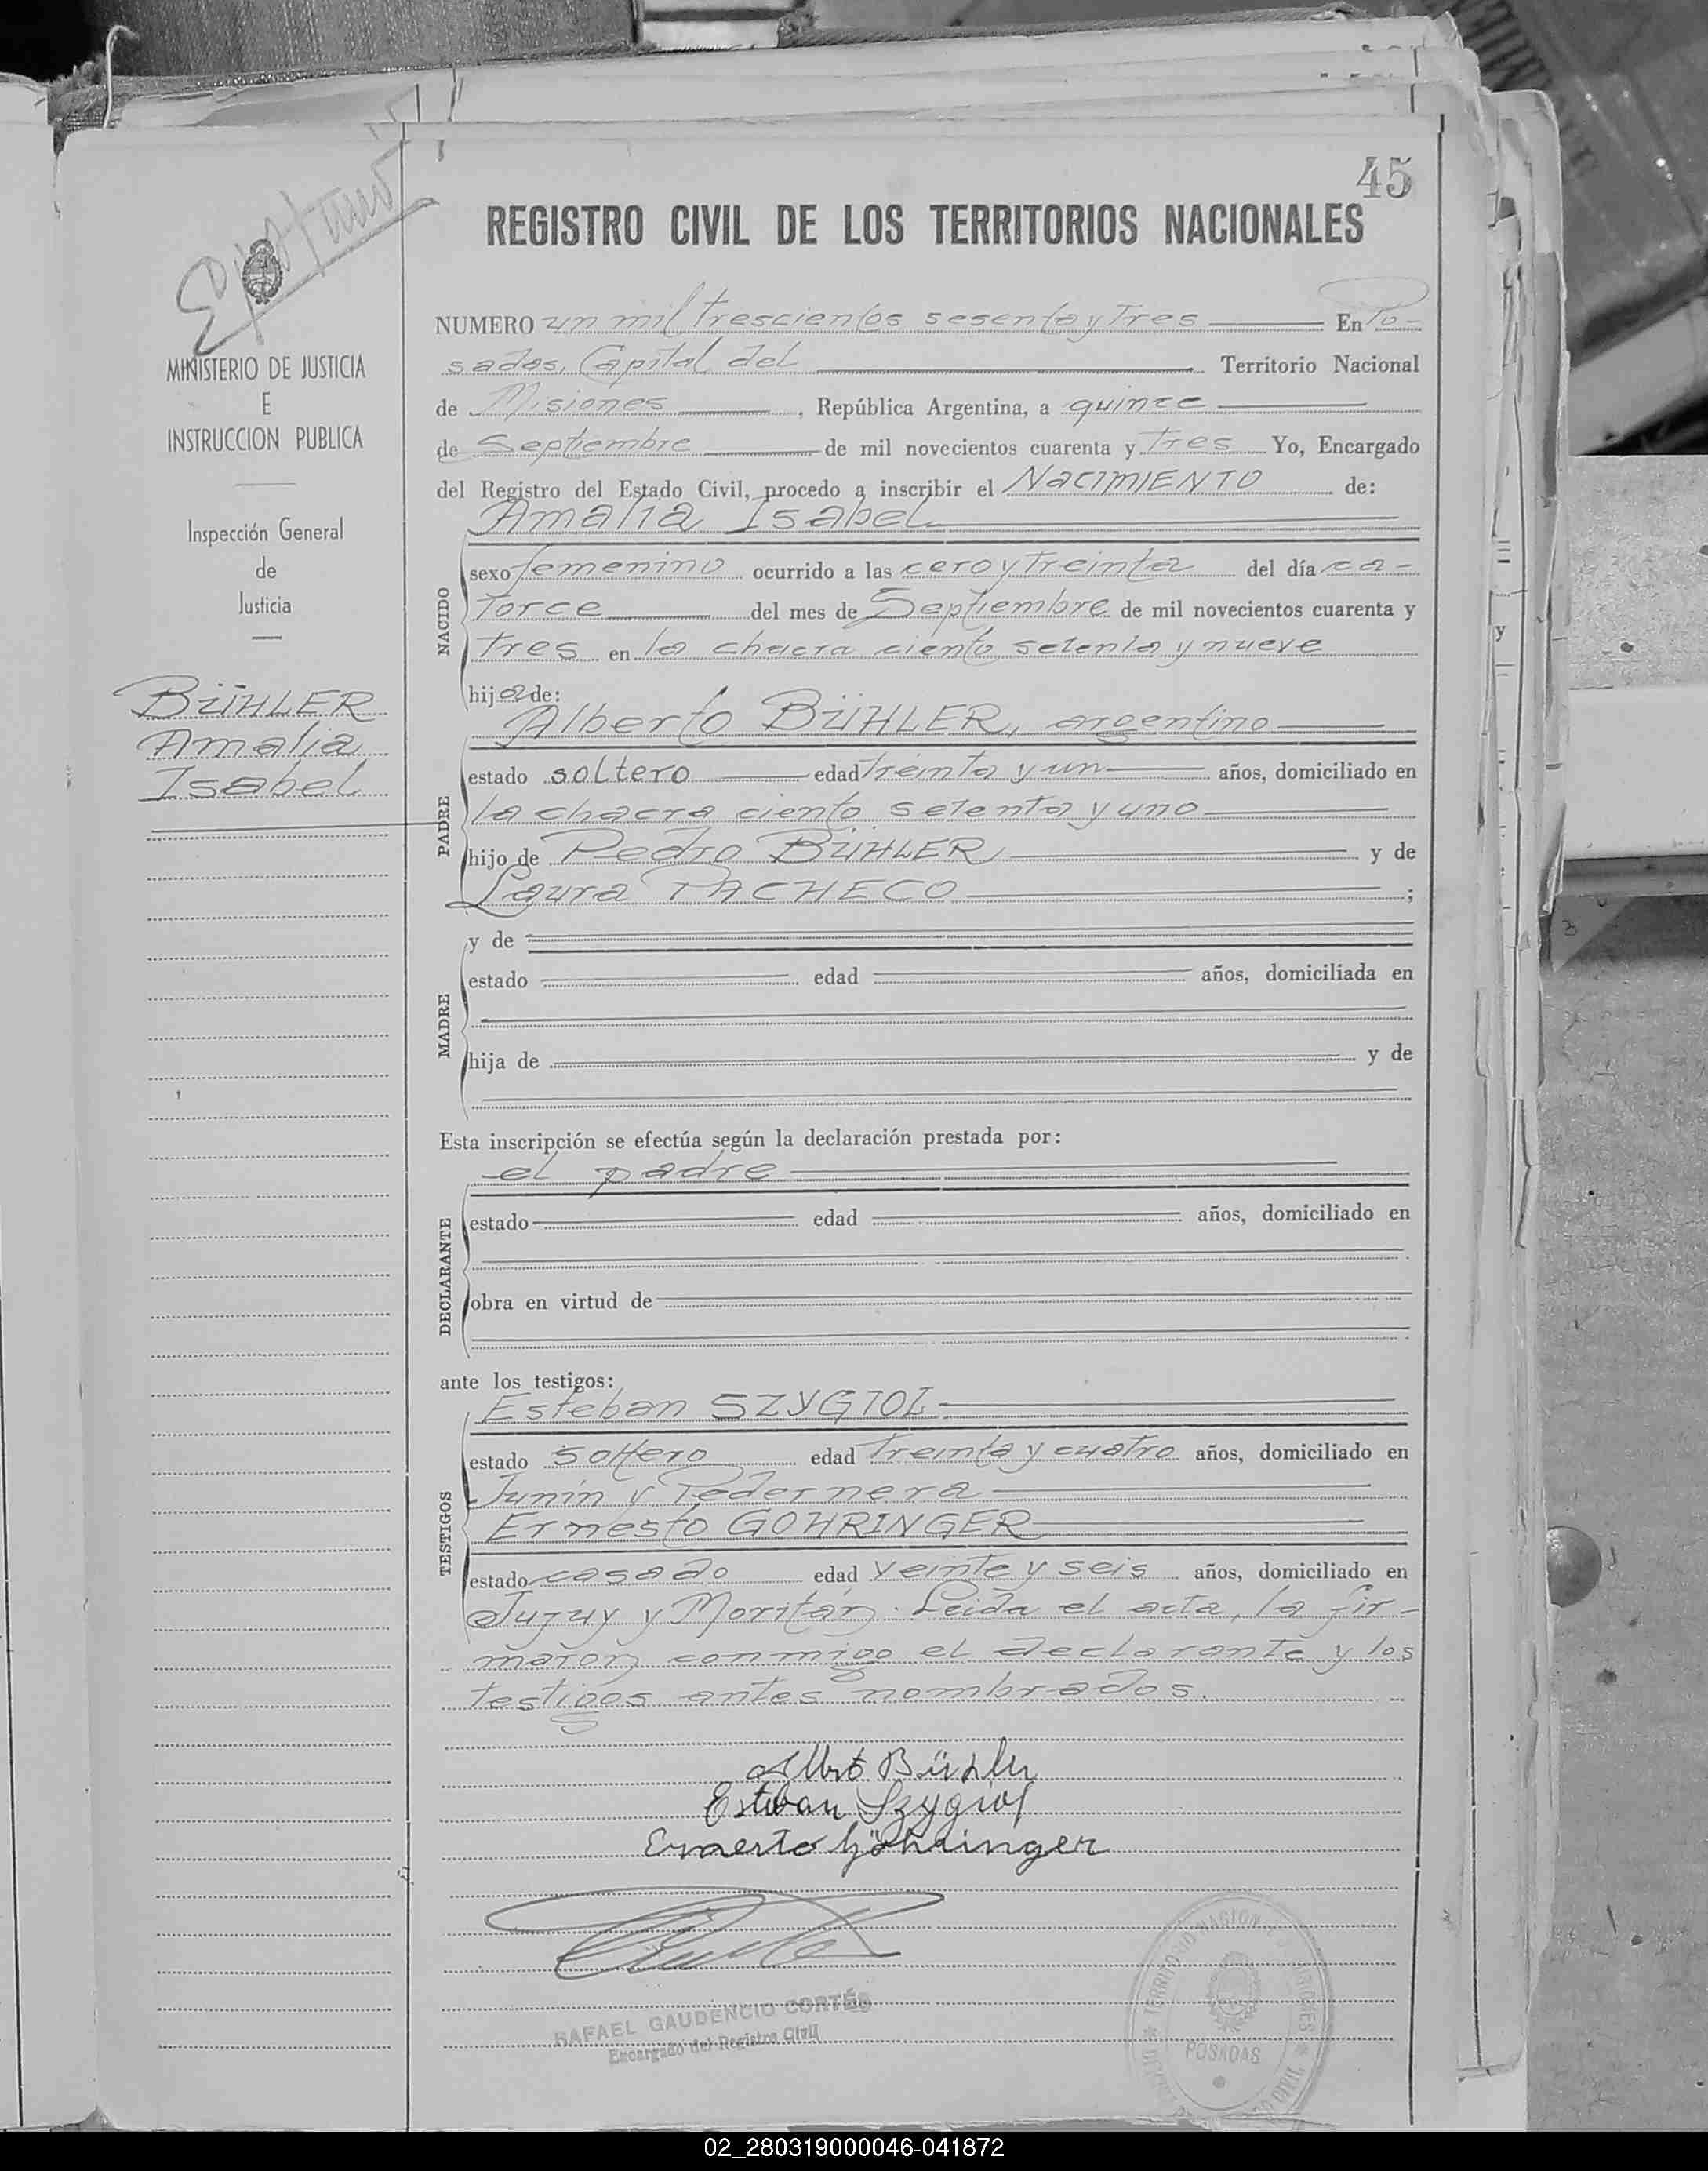 45
REGISTRO CIVIL DE LOS TERRITORIOS NACIONALES
MINISTERIO DE JUSTICIA
E
INSTRUCCION PUBLICA
Inspección General
de
Justicia
BÜHLER
Amalia
Isabel
NUMERO un mil trescientos sesenta y tres En Po-
sadas, Capital del Territorio Nacional
de Misiones, República Argentina, a quince
de Septiembre de mil novecientos cuarenta y tres Yo, Encargado
del Registro del Estado Civil, procedo a inscribir el NACIMIENTO de:
Amalia Isabel
NACIDO
sexo femenino ocurrido a las cero y treinta del día ca-
torce del mes de Septiembre de mil novecientos cuarenta y
tres en la chacra ciento setenta y nueve
hija de:
Alberto BÜHLER, argentino
PADRE
estado soltero edad treinta y un años, domiciliado en
la chacra ciento setenta y uno
hijo de Pedro BÜHLER y de
Laura PACHECO ;
y de
MADRE
estado edad años, domiciliada en
hija de y de
Esta inscripción se efectúa según la declaración prestada por:
el padre
DECLARANTE
estado edad años, domiciliado en
obra en virtud de
ante los testigos:
Esteban SZYGIOL
TESTIGOS
estado soltero edad treinta y cuatro años, domiciliado en
Junín y Pedernera
Ernesto GOHRINGER
estado casado edad veinte y seis años, domiciliado en
Jujuy y Moritán. Leida el acta, la fir-
maron conmigo el declarante y los
testigos antes nombrados.
Albto Bühler
Esteban Szygiol
Ernesto Göhringer
RAFAEL GAUDENCIO CORTÉS
Encargado del Registro Civil
POSADAS
02_280319000046-041872